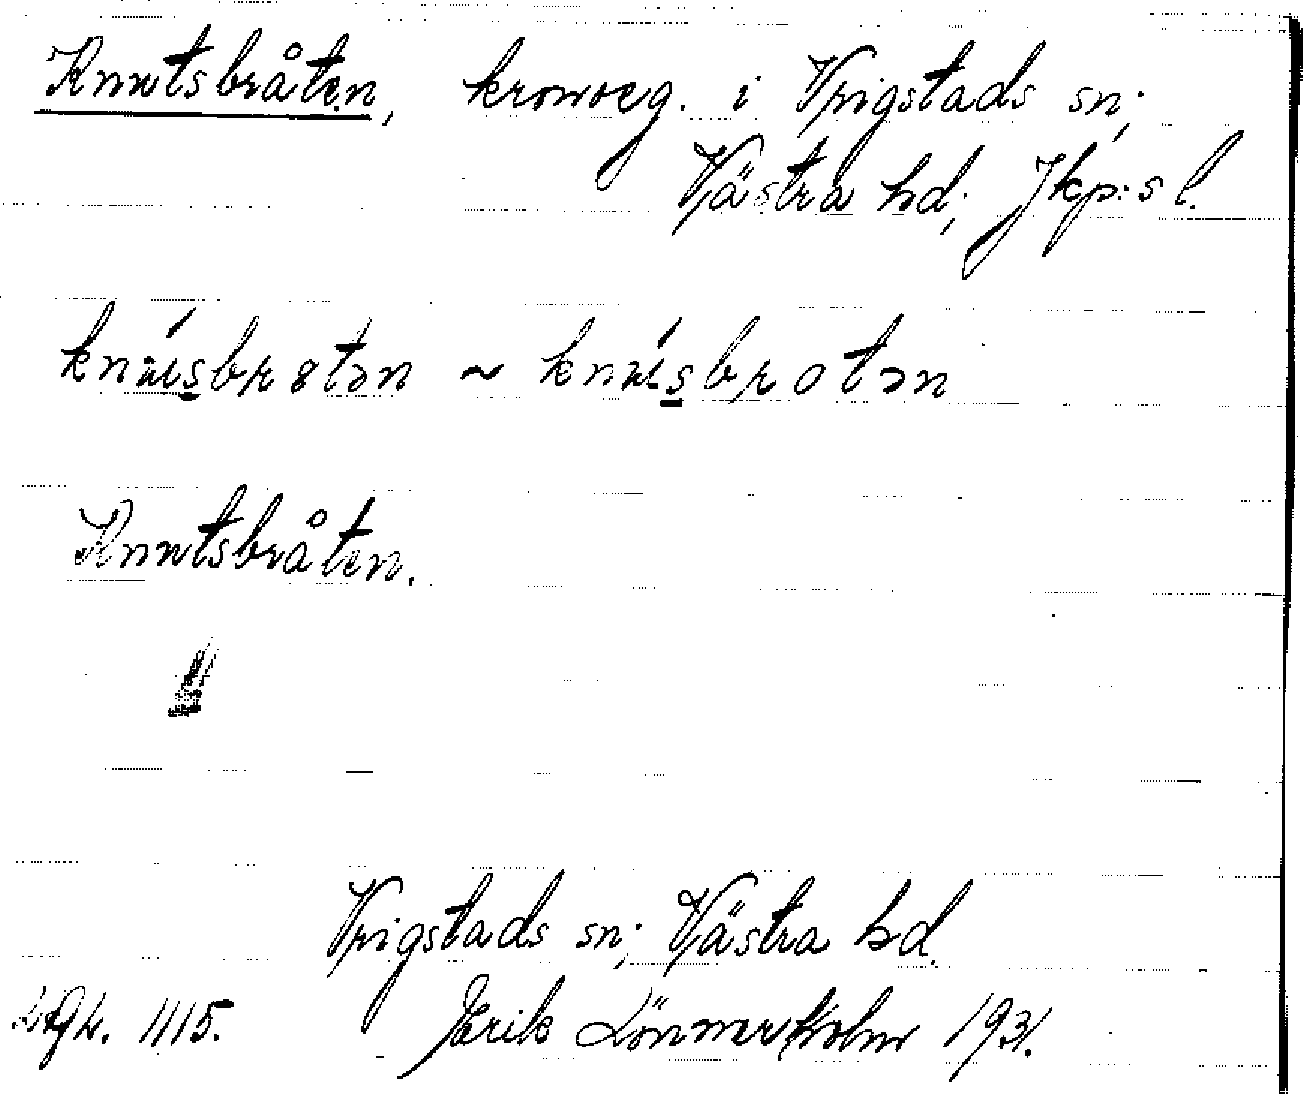 Knutsbråten, kronoeg. i Vrigstads sn;
Västra hd; Jkp:s l.
knúsbrøtən ~ knúsbrotən
Knutsbråten.
Vrigstads sn; Västra hd.
1115. Erik Lönnerholm 1931.